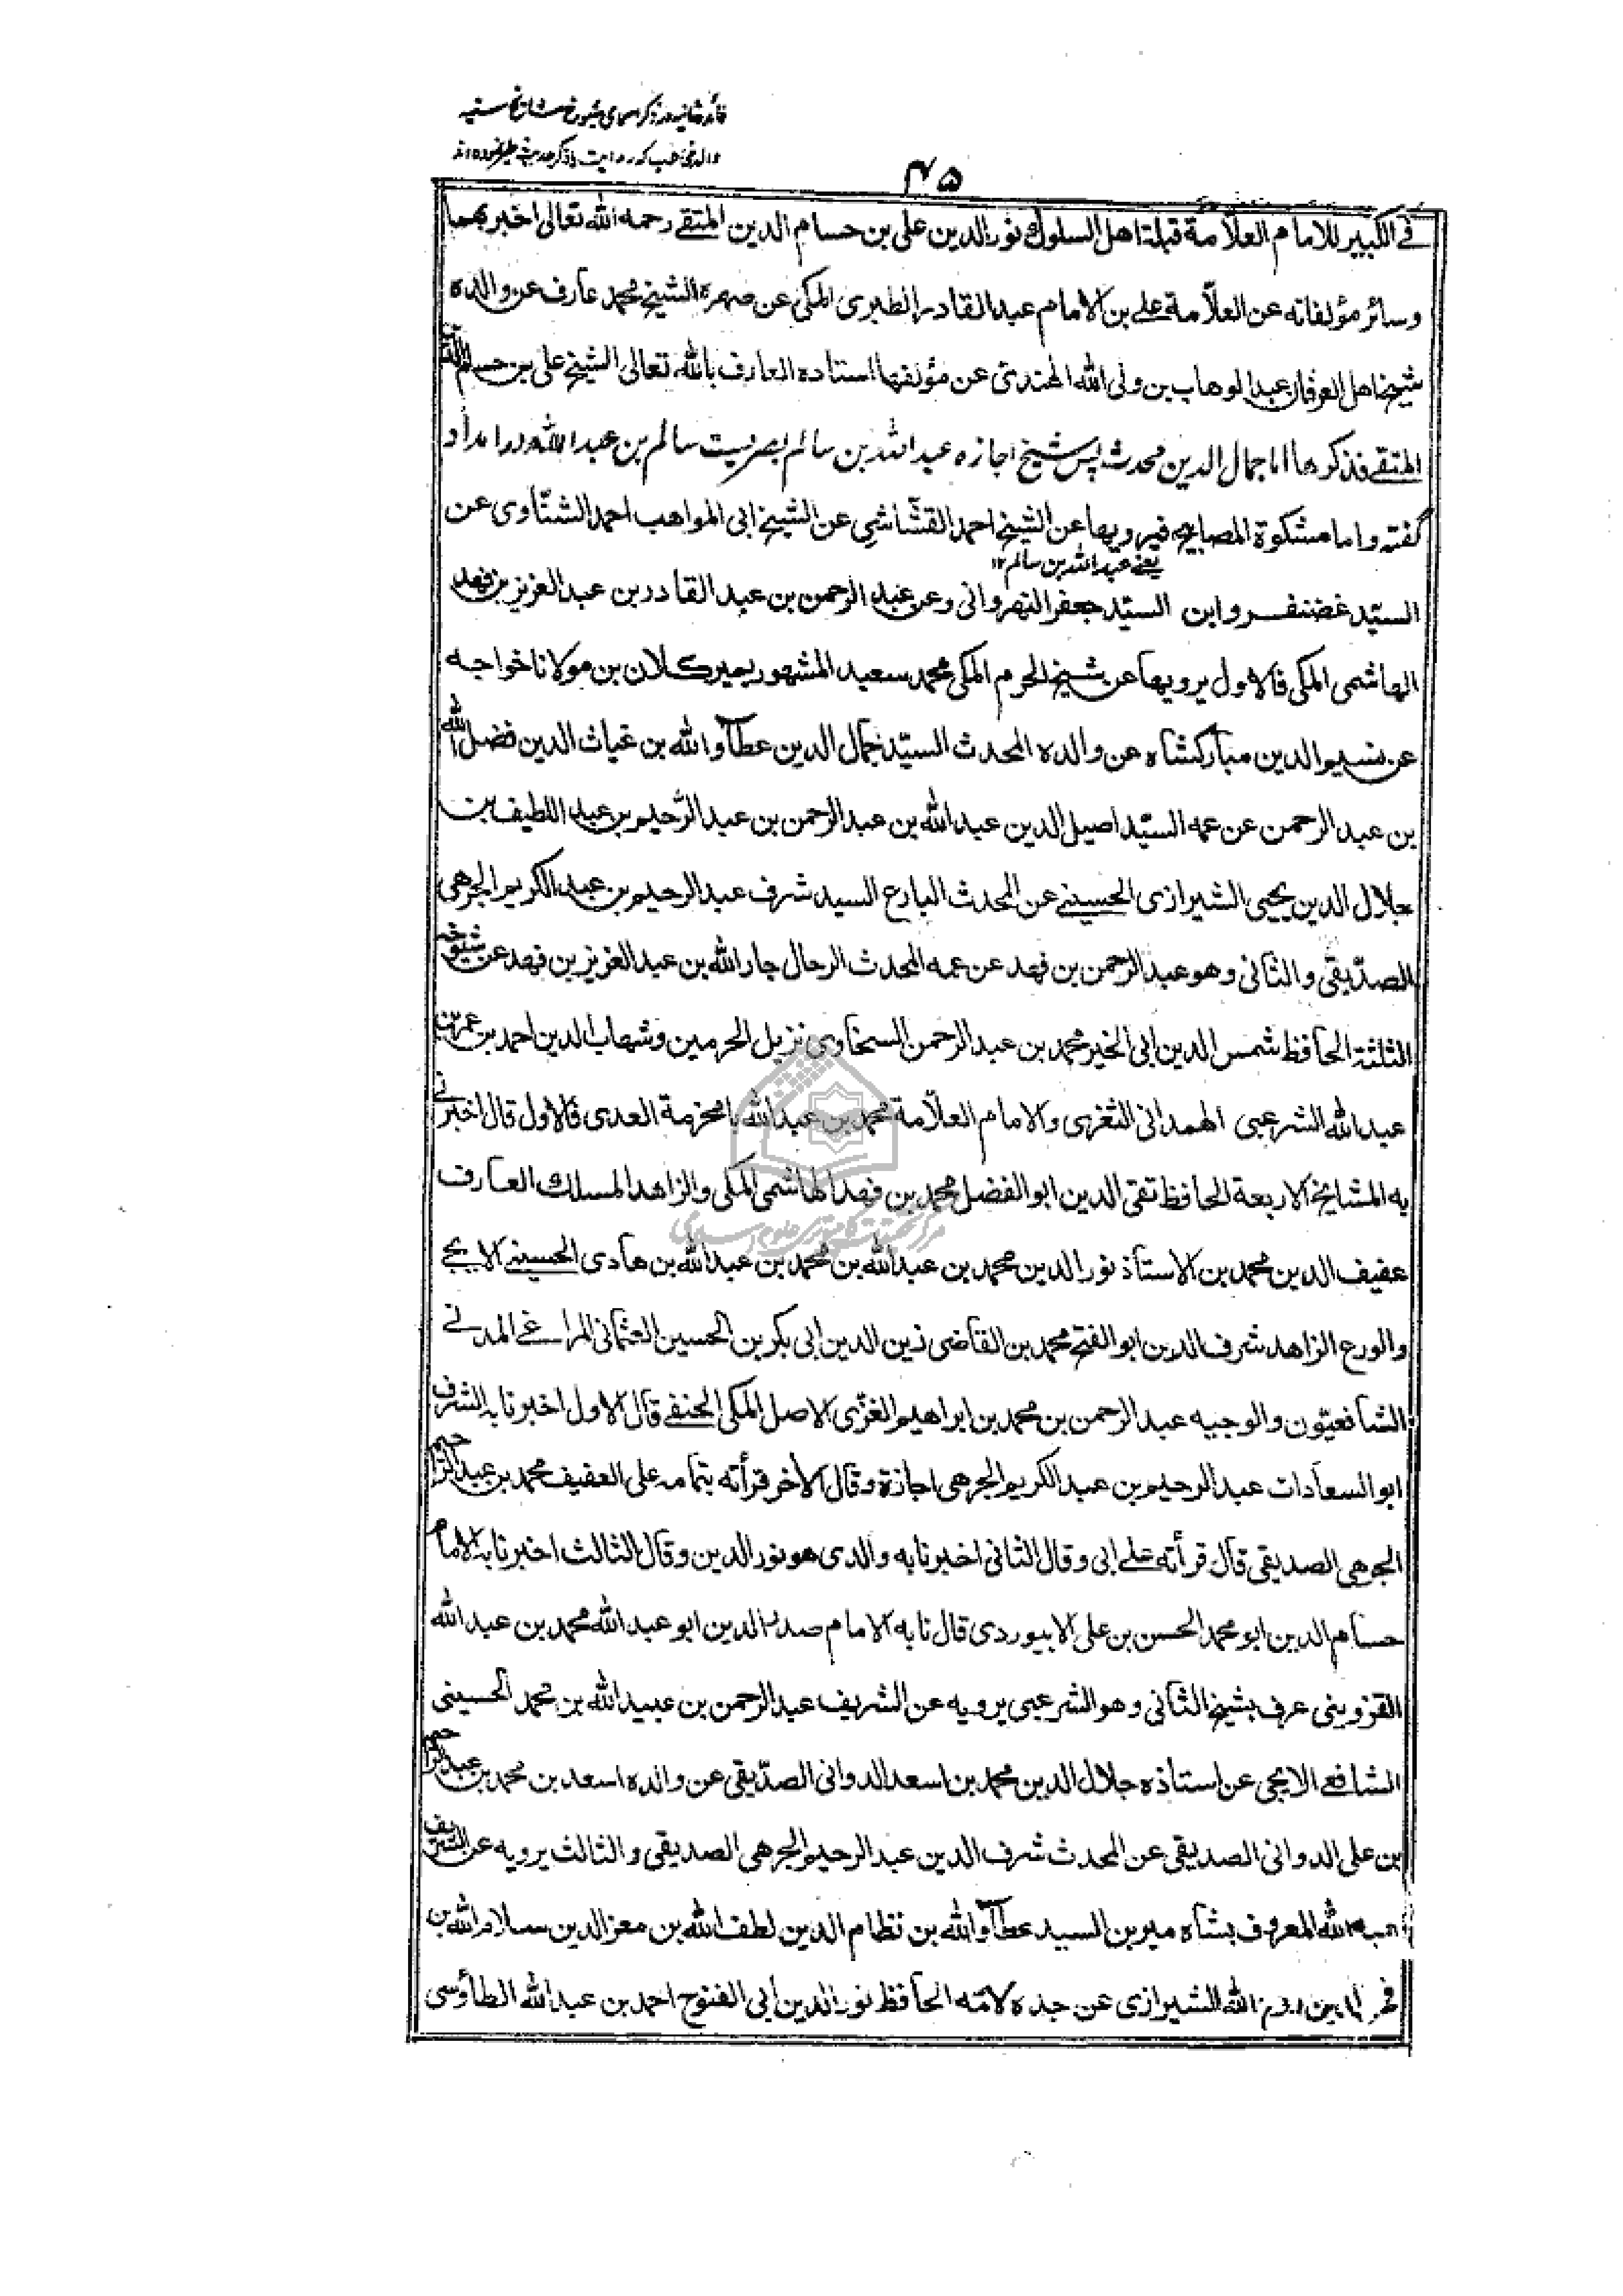 ۴۵
في الكبير للامام العلّامة قبلة اهل السلوك نور الدين علي بن حسام الدين المتقي رحمه الله تعالى اخبر بهما
وسائر مؤلفاته عن العلّامة علي بن الامام عبد القادر الطبرى المكى عن صهره الشيخ محمد عارف عن والده
شيخ اهل العرفان عبد الوهاب بن ولى الله الهندى عن مؤلفها استاده العارف بالله تعالى الشيخ على بن حسام الدين
المتقى فذكرها اما جمال الدين محدث پس شيخ اجازه عبد الله بن سالم بصريست سالم بن عبد الله در امداد
گفته واما مشكوة المصابيح فيرويها عن الشيخ احمد القشّاشى عن الشيخ ابى المواهب احمد الشنّاوى عن
يعني عبد الله بن سالم ۱۲
السيّد غضنفر وابن السيّد جعفر النهروانى وعن عبد الرحمن بن عبد القادر بن عبد العزيز بن فهد
الهاشمى المكى فالاول يرويها عن شيخ الحرم المكى محمد سعيد المشهور بمير كلان بن مولانا خواجه
عن نسيم الدين ميرك شاه عن والده المحدث السيّد جمال الدين عطاء الله بن غياث الدين فضل الله
بن عبد الرحمن عن عمه السيّد اصيل الدين عبد الله بن عبد الرحمن بن عبد الرّحيم بن عبد اللطيف بن
جلال الدين يحيى الشيرازى الحسيني عن المحدث البارع السيد شرف عبد الرحيم بن عبد الكريم الجرهى
الصدّيقى والثانى وهو عبد الرحمن بن فهد عن عمه المحدث الرحال جار الله بن عبد العزيز بن فهد عن شيوخه
الثلثة الحافظ شمس الدين ابى الخير محمد بن عبد الرحمن السخاوى نزيل الحرمين وشهاب الدين احمد بن عمر بن
عبد الله الشرعبى الهمدانى التعزى والامام العلّامة محمد بن عبد الله بامخرمة العدى فالاول قال اخبرنى
به المشايخ الاربعة الحافظ تقى الدين ابو الفضل محمد بن فهد الهاشمى المكى والزاهد المسلك العارف
عفيف الدين محمد بن الاستاذ نور الدين محمد بن عبد الله بن محمد بن عبد الله بن هادى الحسيني الايجي
والورع الزاهد شرف الدين ابو الفتح محمد بن القاضى زين الدين ابى بكر بن الحسين العثمانى المراغى المدنى
الشافعيّون والوجيه عبد الرحمن بن محمد بن ابراهيم الغزّى الاصل المكى الحنفي قال الاول اخبرنا به الشرف
ابو السعادات عبد الرحيم بن عبد الكريم الجرهى اجازة وقال الآخر قرأته بتمامه على العفيف محمد بن عبد الرحيم
الجرهى الصديقى قال قرأته على ابى وقال الثانى اخبرنا به والدى هو نور الدين وقال الثالث اخبرنا به الامام
حسام الدين ابو محمد الحسن بن على الابيوردى قال نا به الامام صدر الدين ابو عبد الله محمد بن عبد الله
القزوينى عرف بشيخ الثانى وهو الشرعبى يرويه عن الشريف عبد الرحمن بن عبيد الله بن محمد الحسينى
الشافعي الايجى عن استاذه جلال الدين محمد بن اسعد الدوانى الصدّيقى عن والده اسعد بن محمد بن عبد الرحيم
بن على الدوانى الصديقى عن المحدث شرف الدين عبد الرحيم الجرهى الصديقى والثالث يرويه عن الشريف
الله المعروف بشاه مير بن السيد عطاء الله بن نظام الدين لطف الله بن معز الدين سلام الله بن
الله الشيرازى عن جده لامّه الحافظ نور الدين ابى الفتوح احمد بن عبد الله الطاؤسى